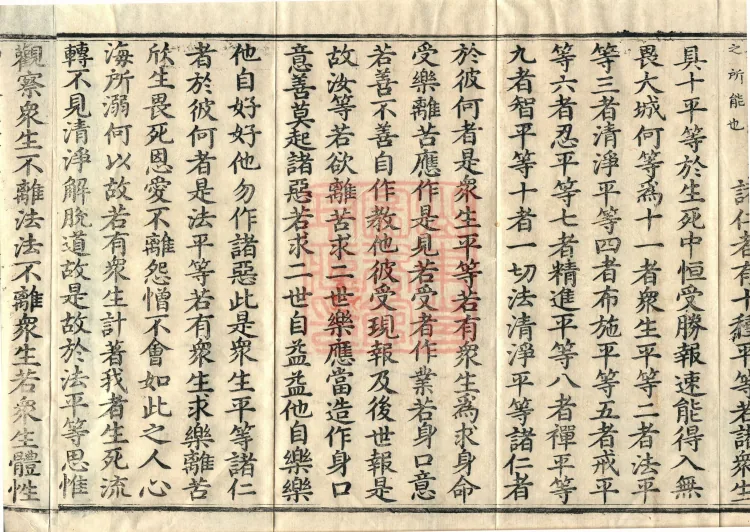 之所能也
諸仁者有十種平等若諸衆生
具十平等於生死中恒受勝報速能得入無
畏大城何等爲十一者衆生平等二者法平
等三者清淨平等四者布施平等五者戒平
等六者忍平等七者精進平等八者禪平等
九者智平等十者一切法清淨平等諸仁者
於彼何者是衆生平等若有衆生爲求身命
受樂離苦應作是見若受者作業若身口意
若善不善自作教他彼受現報及後世報是
故汝等若欲離苦求二世樂應當造作身口
意善莫起諸惡若求二世自益益他自樂樂
他自好好他勿作諸惡此是衆生平等諸仁
者於彼何者是法平等若有衆生求樂離苦
欣生畏死恩愛不離怨憎不會如此之人心
海所溺何以故若有衆生計著我者生死流
轉不見清淨解脫道故是故於法平等思惟
觀察衆生不離法法不離衆生若衆生體性